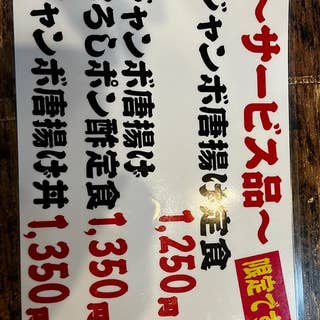 〜サービス品〜
限定です
ジャンボ唐揚げ定食
1,250円
ジャンボ唐揚げ
おろしポン酢定食
1,350円
ジャンボ唐揚げ丼
1,350円